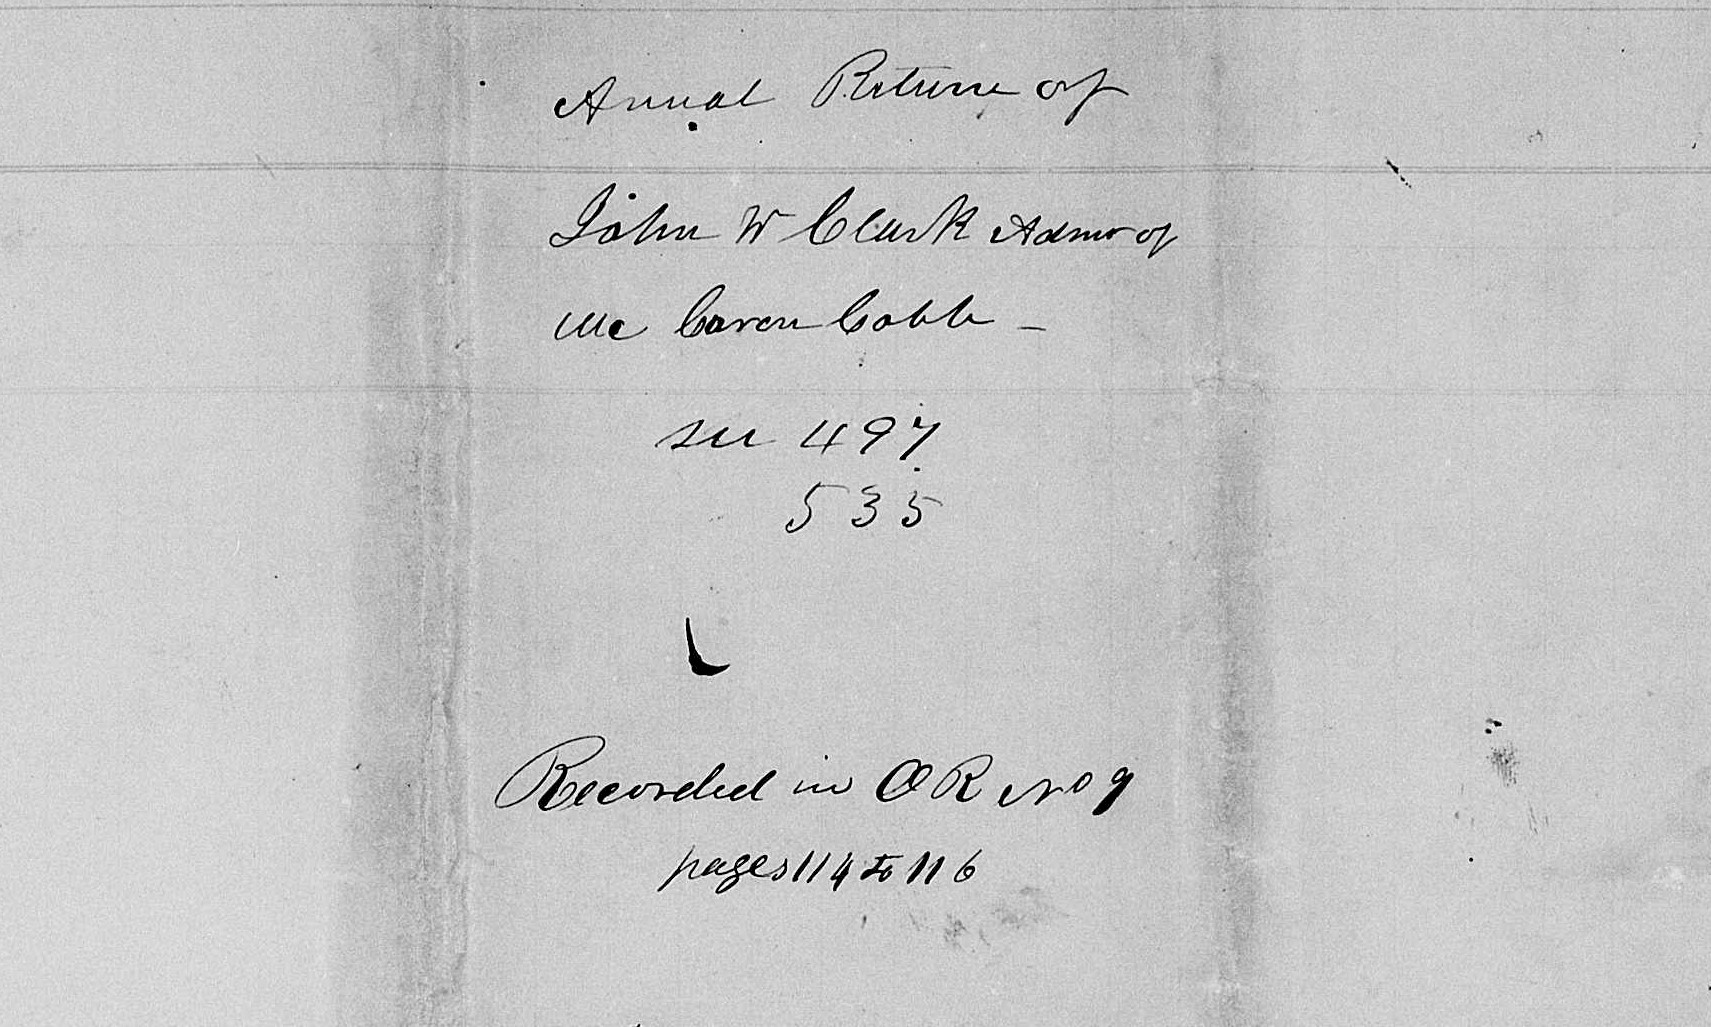 Annual Return of
John W Clark Admr of
Mc Caron Cobb
see 497
535
Recorded in O R No 9
pages 114 to 116